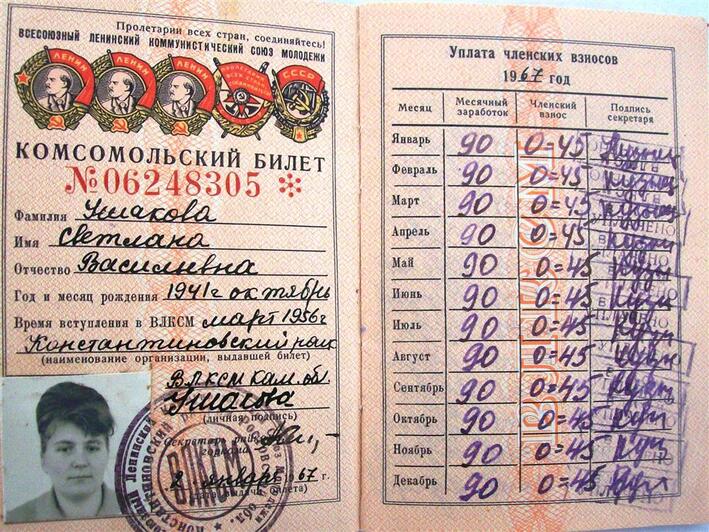 Пролетарии всех стран, соединяйтесь!
ВСЕСОЮЗНЫЙ ЛЕНИНСКИЙ КОММУНИСТИЧЕСКИЙ СОЮЗ МОЛОДЕЖИ
ЛЕНИН ЛЕНИН ЛЕНИН СССР
КОМСОМОЛЬСКИЙ БИЛЕТ
№06248305
Фамилия Ушакова
Имя Светлана
Отчество Васильевна
Год и месяц рождения 1941г октябрь
Время вступления в ВЛКСМ март 1956г
Константиновский
(наименование организации, выдавшей билет)
ВЛКСМ
Ушакова
(личная подпись)
Секретарь
горкома
2 январь 1967 г.
(дата выдачи билета)
ВЛКСМ
Уплата членских взносов
1967 год
Месяц Месячный заработок Членский взнос Подпись секретаря
Январь 90 0=45
Февраль 90 0=45
Март 90 0=45
Апрель 90 0=45
Май 90 0=45
Июнь 90 0=45
Июль 90 0=45
Август 90 0=45
Сентябрь 90 0=45
Октябрь 90 0=45
Ноябрь 90 0=45
Декабрь 90 0=45